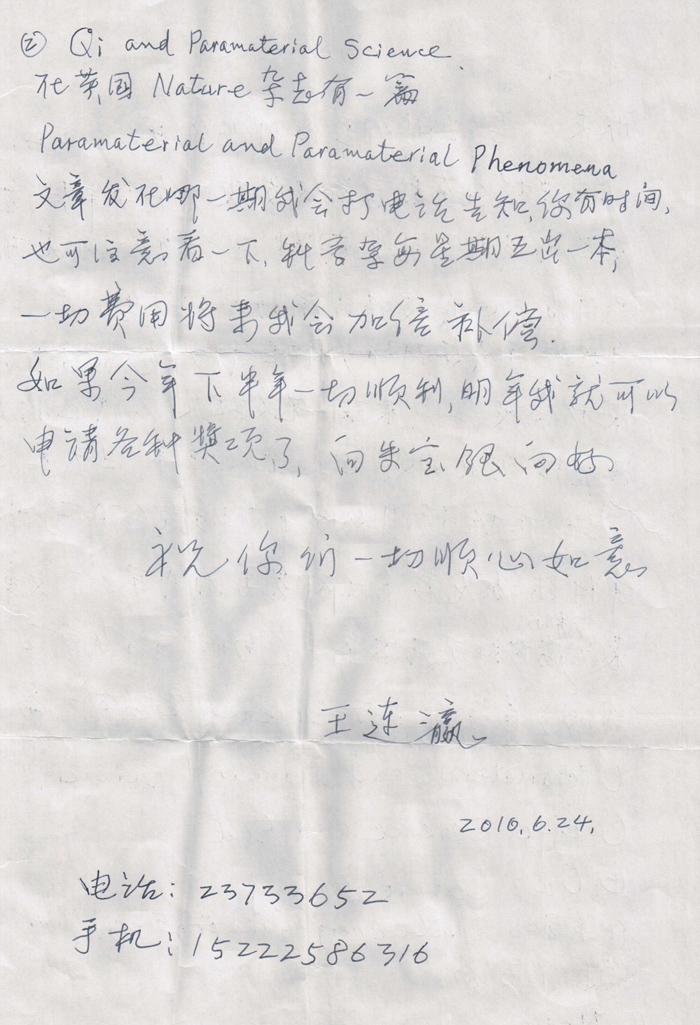 ② Qi and Paramaterial Science
在英国 Nature 杂志有一篇
Paramaterial and Paramaterial Phenomena
文章发在哪一期我会打电话告知,你有时间,
也可注意看一下,科学每星期五出一本,
一切费用将来我会加倍补偿.
如果今年下半年一切顺利,明年我就可以
申请各种奖项了,向朱宝银向好
祝你们一切顺心如意
王连瀛
2010.6.24.
电话:23733652
手机:15222586316